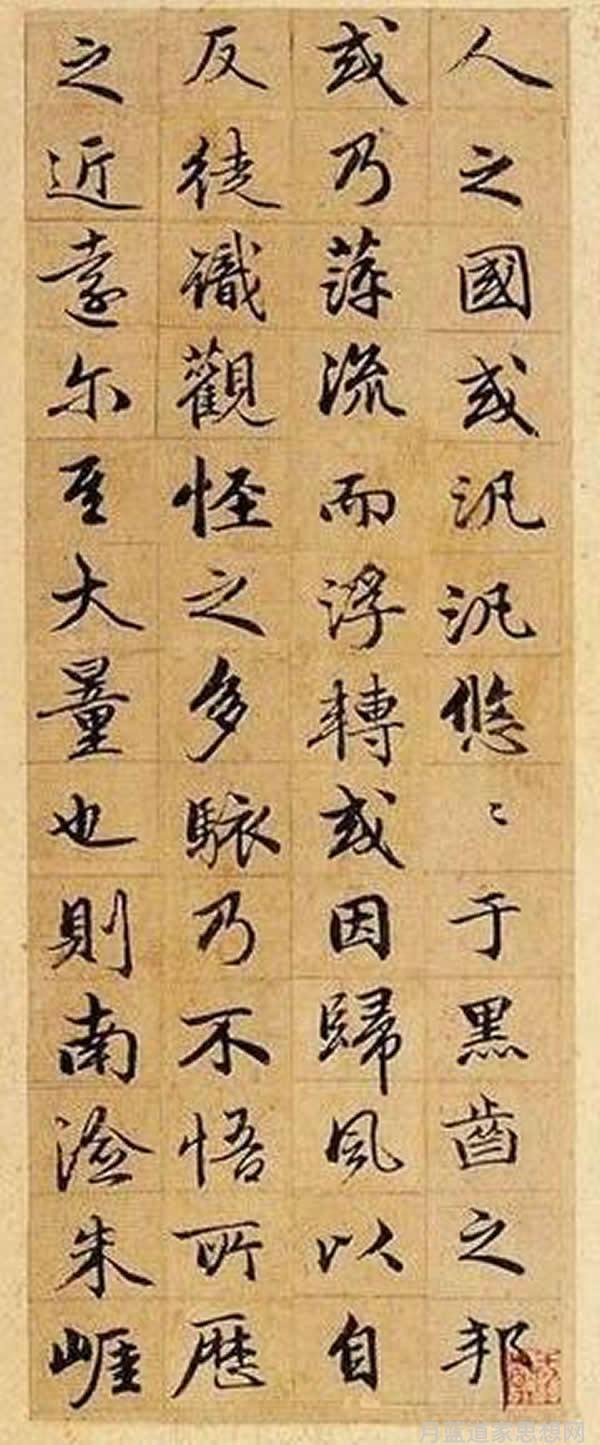 人之國或汎汎悠〻于黑齒之邦
或乃萍流而浮轉或因歸風以自
反徒識觀怪之多駭乃不悟所歷
之近遠尔其大量也則南澰朱崖
月蓝道家思想网